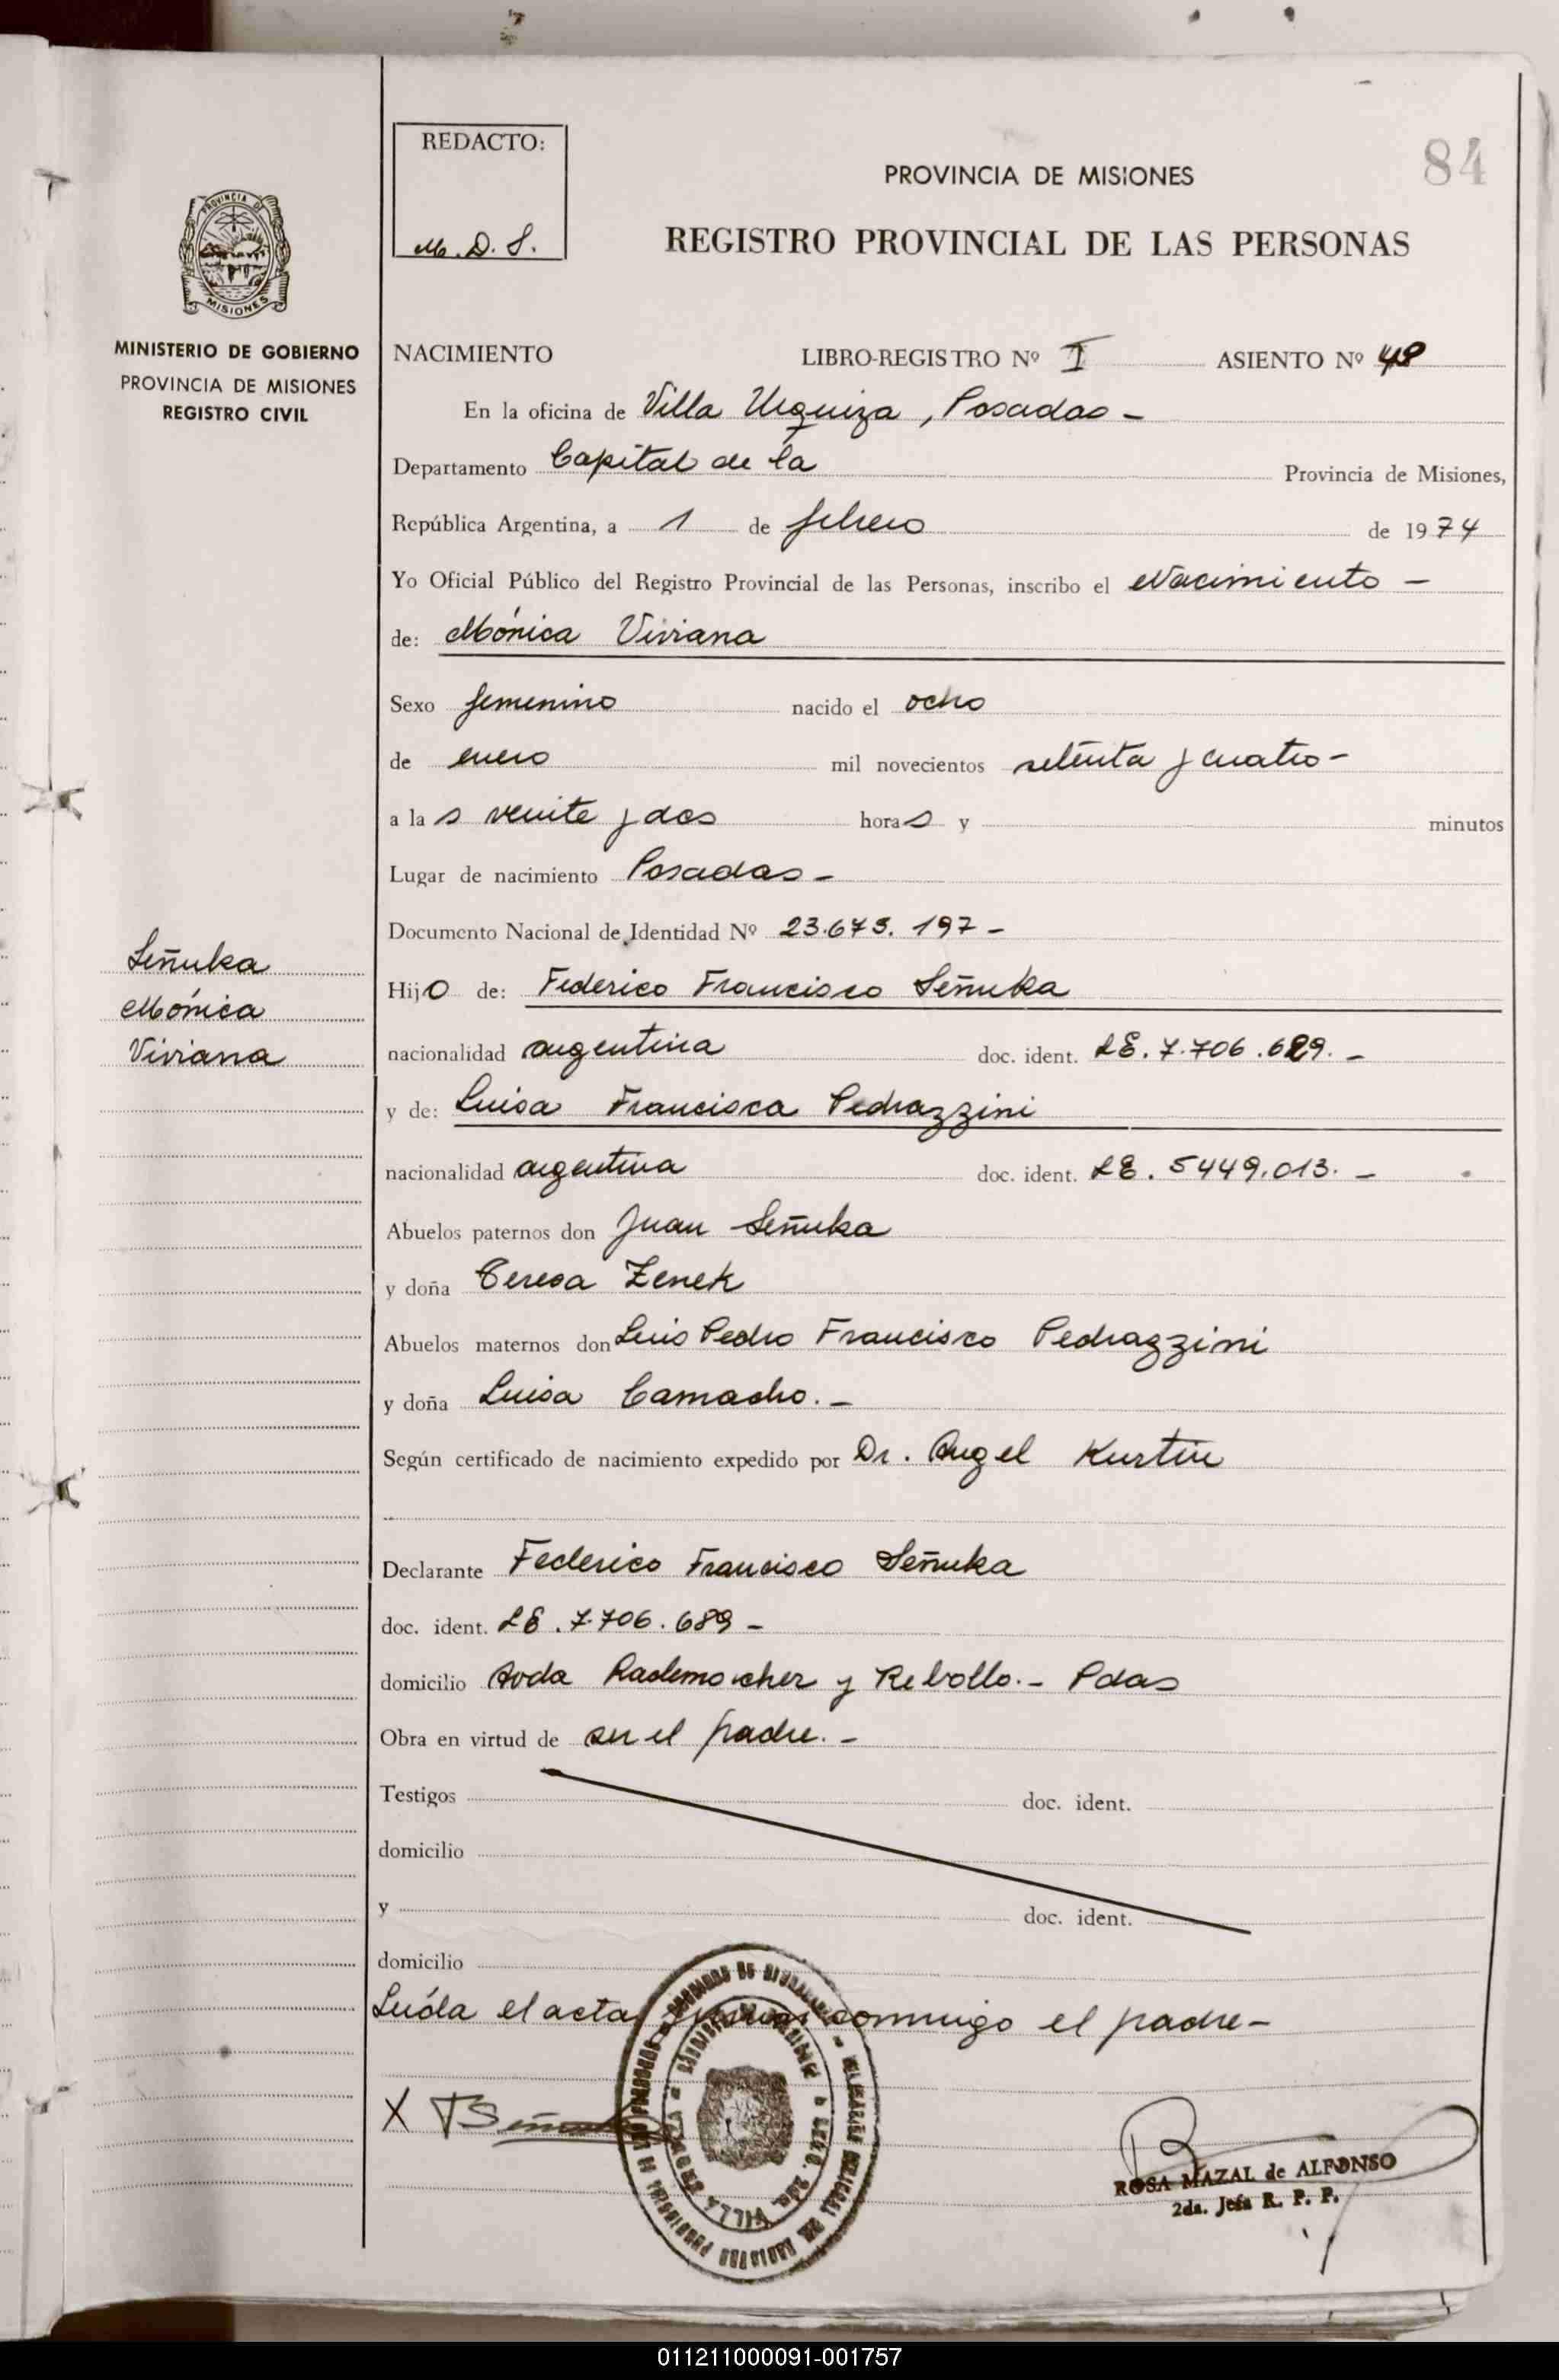 84
REDACTO:
M. D. S.
PROVINCIA DE MISIONES
REGISTRO PROVINCIAL DE LAS PERSONAS
PROVINCIA DE
MISIONES
MINISTERIO DE GOBIERNO
PROVINCIA DE MISIONES
REGISTRO CIVIL
NACIMIENTO LIBRO-REGISTRO Nº I ASIENTO Nº 48
En la oficina de Villa Urquiza, Posadas -
Departamento Capital de la Provincia de Misiones,
República Argentina, a 1 de febrero de 1974
Yo Oficial Público del Registro Provincial de las Personas, inscribo el Nacimiento -
de: Mónica Viviana
Sexo femenino nacido el ocho
de enero mil novecientos setenta y cuatro -
a la s veinte y dos hora s y minutos
Lugar de nacimiento Posadas -
Documento Nacional de Identidad Nº 23.673.197 -
Señuka
Mónica
Viviana
Hijo de: Federico Francisco Señuka
nacionalidad argentina doc. ident. LE. 7.706.689. -
y de: Luisa Francisca Pedrazzini
nacionalidad argentina doc. ident. LE. 5449.013. -
Abuelos paternos don Juan Señuka
y doña Teresa Zenek
Abuelos maternos don Luis Pedro Francisco Pedrazzini
y doña Luisa Camacho. -
Según certificado de nacimiento expedido por Dr. Angel Kurtin
Declarante Federico Francisco Señuka
doc. ident. LE. 7.706.689 -
domicilio Avda Rademacher y Rebollo. - Pdas
Obra en virtud de ser el padre. -
Testigos doc. ident.
domicilio
y doc. ident.
domicilio
Leída el acta firma conmigo el padre -
X FSeñuka
VILLA
ROSA MAZAL de ALFONSO
2da. Jefa R. P. P.
011211000091-001757